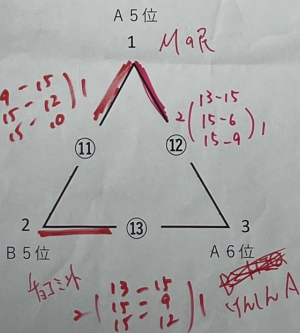 A 5位
1
Ma民
9-15
15-12
15-10
)1
2(
13-15
15-6
15-9
)1
⑪
⑫
2
⑬
3
B 5位
A 6位
チョコミント
2(
13-15
15-9
15-12
)1
けんしんA